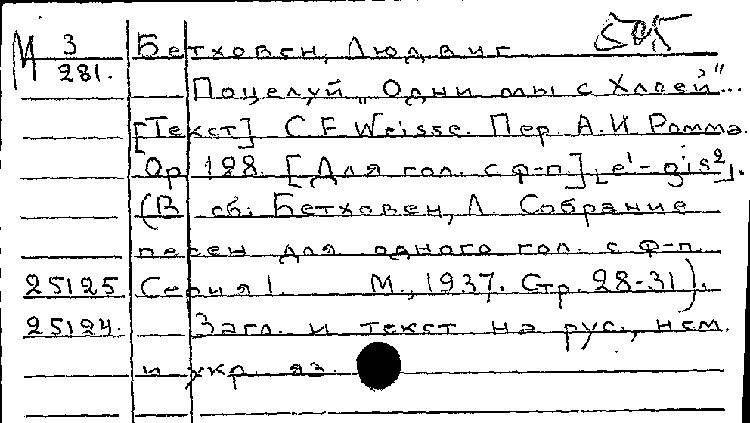 М 3/281. Бетховен, Людвиг 505
Поцелуй „Одни мы с Хлоей"...
[Текст] C.F. Weisse. Пер. А.И. Ромма.
Op. 128. [Для гол. с ф-п.] [e¹-gis²].
(В сб.: Бетховен, Л. Собрание
песен для одного гол. с ф-п.
25125 Серия 1. М., 1937. Стр. 28-31).
25124. Загл. и текст на рус., нем.
и укр. яз.